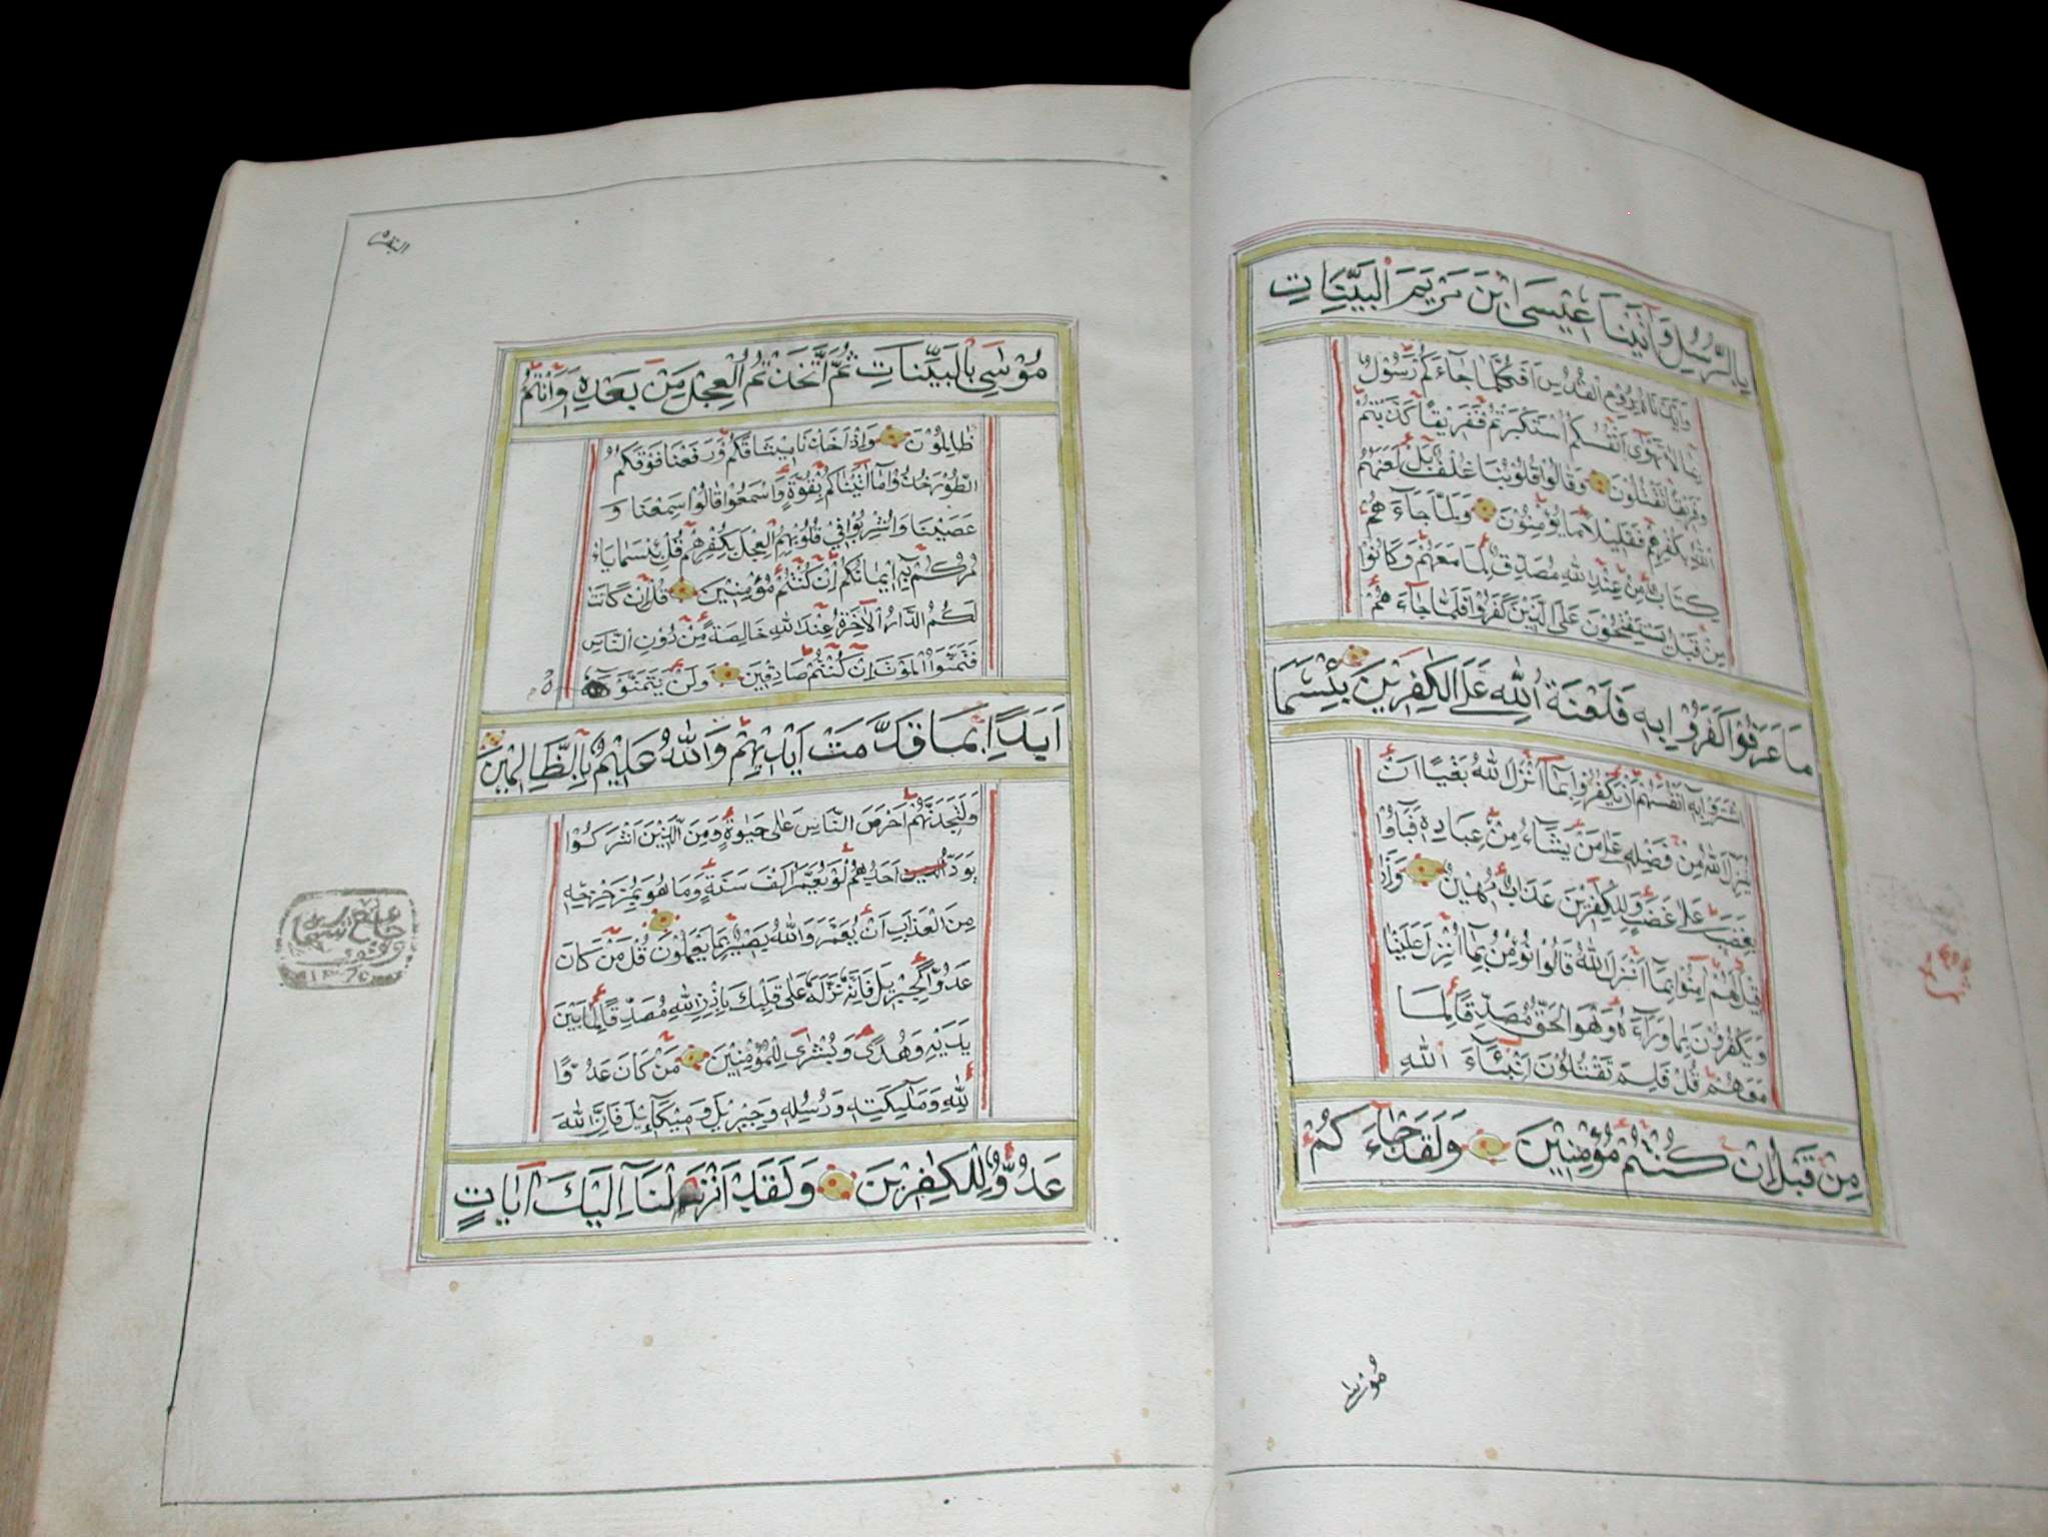 بِالرُّسُلِ وَآتَيْنَا عِيْسَى ابْنَ مَرْيَمَ الْبَيِّنَاتِ
وَاَيَّدْنَاهُ بِرُوْحِ الْقُدُسِ اَفَكُلَّمَا جَآءَكُمْ رَسُوْلٌ
بِمَا لَا تَهْوٰٓى اَنْفُسُكُمُ اسْتَكْبَرْتُمْ فَفَرِيْقًا كَذَّبْتُمْ
وَفَرِيْقًا تَقْتُلُوْنَ وَقَالُوْا قُلُوْبُنَا غُلْفٌ بَلْ لَعَنَهُمُ
اللّٰهُ بِكُفْرِهِمْ فَقَلِيْلًا مَّا يُؤْمِنُوْنَ وَلَمَّا جَآءَهُمْ
كِتَابٌ مِنْ عِنْدِ اللّٰهِ مُصَدِّقٌ لِمَا مَعَهُمْ وَكَانُوْا
مِنْ قَبْلُ يَسْتَفْتِحُوْنَ عَلَى الَّذِيْنَ كَفَرُوْا فَلَمَّا جَآءَهُمْ
مَا عَرَفُوْا كَفَرُوْا بِهٖ فَلَعْنَةُ اللّٰهِ عَلَى الْكٰفِرِيْنَ بِئْسَمَا
اشْتَرَوْا بِهٖ اَنْفُسَهُمْ اَنْ يَكْفُرُوْا بِمَآ اَنْزَلَ اللّٰهُ بَغْيًا اَنْ
يُنَزِّلَ اللّٰهُ مِنْ فَضْلِهٖ عَلٰى مَنْ يَشَآءُ مِنْ عِبَادِهٖ فَبَآؤُا
بِغَضَبٍ عَلٰى غَضَبٍ وَلِلْكٰفِرِيْنَ عَذَابٌ مُهِيْنٌ وَاِذَا
قِيْلَ لَهُمْ اٰمِنُوْا بِمَآ اَنْزَلَ اللّٰهُ قَالُوْا نُؤْمِنُ بِمَآ اُنْزِلَ عَلَيْنَا
وَيَكْفُرُوْنَ بِمَا وَرَآءَهٗ وَهُوَ الْحَقُّ مُصَدِّقًا لِمَا
مَعَهُمْ قُلْ فَلِمَ تَقْتُلُوْنَ اَنْبِيَآءَ اللّٰهِ
مِنْ قَبْلُ اِنْ كُنْتُمْ مُؤْمِنِيْنَ وَلَقَدْ جَآءَكُمْ
مُوْسٰى
البقرة
مُوْسٰى بِالْبَيِّنَاتِ ثُمَّ اتَّخَذْتُمُ الْعِجْلَ مِنْ بَعْدِهٖ وَاَنْتُمْ
ظَالِمُوْنَ وَاِذْ اَخَذْنَا مِيْثَاقَكُمْ وَرَفَعْنَا فَوْقَكُمُ
الطُّوْرَ خُذُوْا مَآ اٰتَيْنَاكُمْ بِقُوَّةٍ وَاسْمَعُوْا قَالُوْا سَمِعْنَا وَ
عَصَيْنَا وَاُشْرِبُوْا فِيْ قُلُوْبِهِمُ الْعِجْلَ بِكُفْرِهِمْ قُلْ بِئْسَمَا يَاْ
مُرُكُمْ بِهٖٓ اِيْمَانُكُمْ اِنْ كُنْتُمْ مُؤْمِنِيْنَ قُلْ اِنْ كَانَتْ
لَكُمُ الدَّارُ الْاٰخِرَةُ عِنْدَ اللّٰهِ خَالِصَةً مِنْ دُوْنِ النَّاسِ
فَتَمَنَّوُا الْمَوْتَ اِنْ كُنْتُمْ صَادِقِيْنَ وَلَنْ يَتَمَنَّوْهُ
اَبَدًا بِمَا قَدَّمَتْ اَيْدِيْهِمْ وَاللّٰهُ عَلِيْمٌ بِالظَّالِمِيْنَ
وَلَتَجِدَنَّهُمْ اَحْرَصَ النَّاسِ عَلٰى حَيٰوةٍ وَمِنَ الَّذِيْنَ اَشْرَكُوْا
يَوَدُّ اَحَدُهُمْ لَوْ يُعَمَّرُ اَلْفَ سَنَةٍ وَمَا هُوَ بِمُزَحْزِحِهٖ
مِنَ الْعَذَابِ اَنْ يُعَمَّرَ وَاللّٰهُ بَصِيْرٌ بِمَا يَعْمَلُوْنَ قُلْ مَنْ كَانَ
عَدُوًّا لِجِبْرِيْلَ فَاِنَّهٗ نَزَّلَهٗ عَلٰى قَلْبِكَ بِاِذْنِ اللّٰهِ مُصَدِّقًا لِمَا بَيْنَ
يَدَيْهِ وَهُدًى وَبُشْرٰى لِلْمُؤْمِنِيْنَ مَنْ كَانَ عَدُوًّا
لِلّٰهِ وَمَلٰٓئِكَتِهٖ وَرُسُلِهٖ وَجِبْرِيْلَ وَمِيْكَآئِيْلَ فَاِنَّ اللّٰهَ
عَدُوٌّ لِلْكٰفِرِيْنَ وَلَقَدْ اَنْزَلْنَآ اِلَيْكَ اٰيَاتٍ